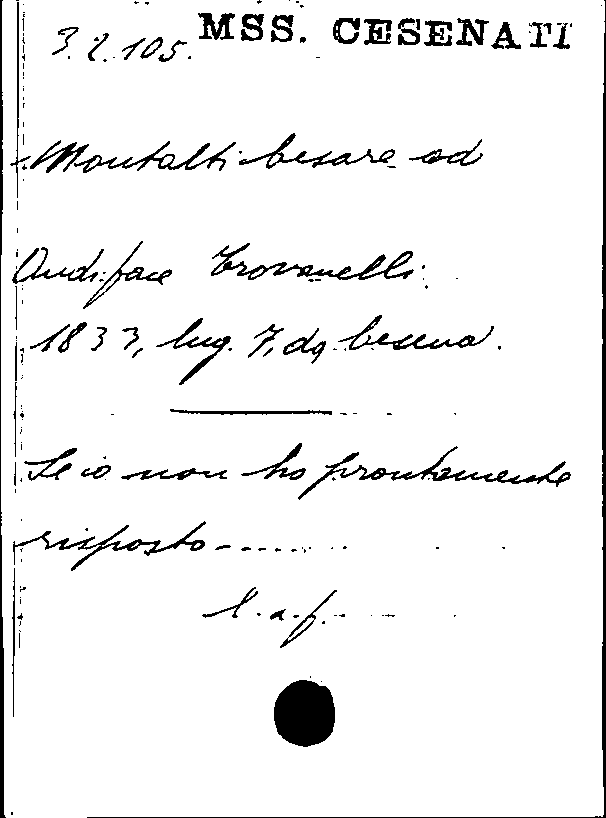 3.2.105. MSS. CESENATI
Montalti Cesare ad
Audiface Trovanelli.
1833, lug. 7, da Cesena.
Se io non ho prontamente
risposto-......
l. a. f.